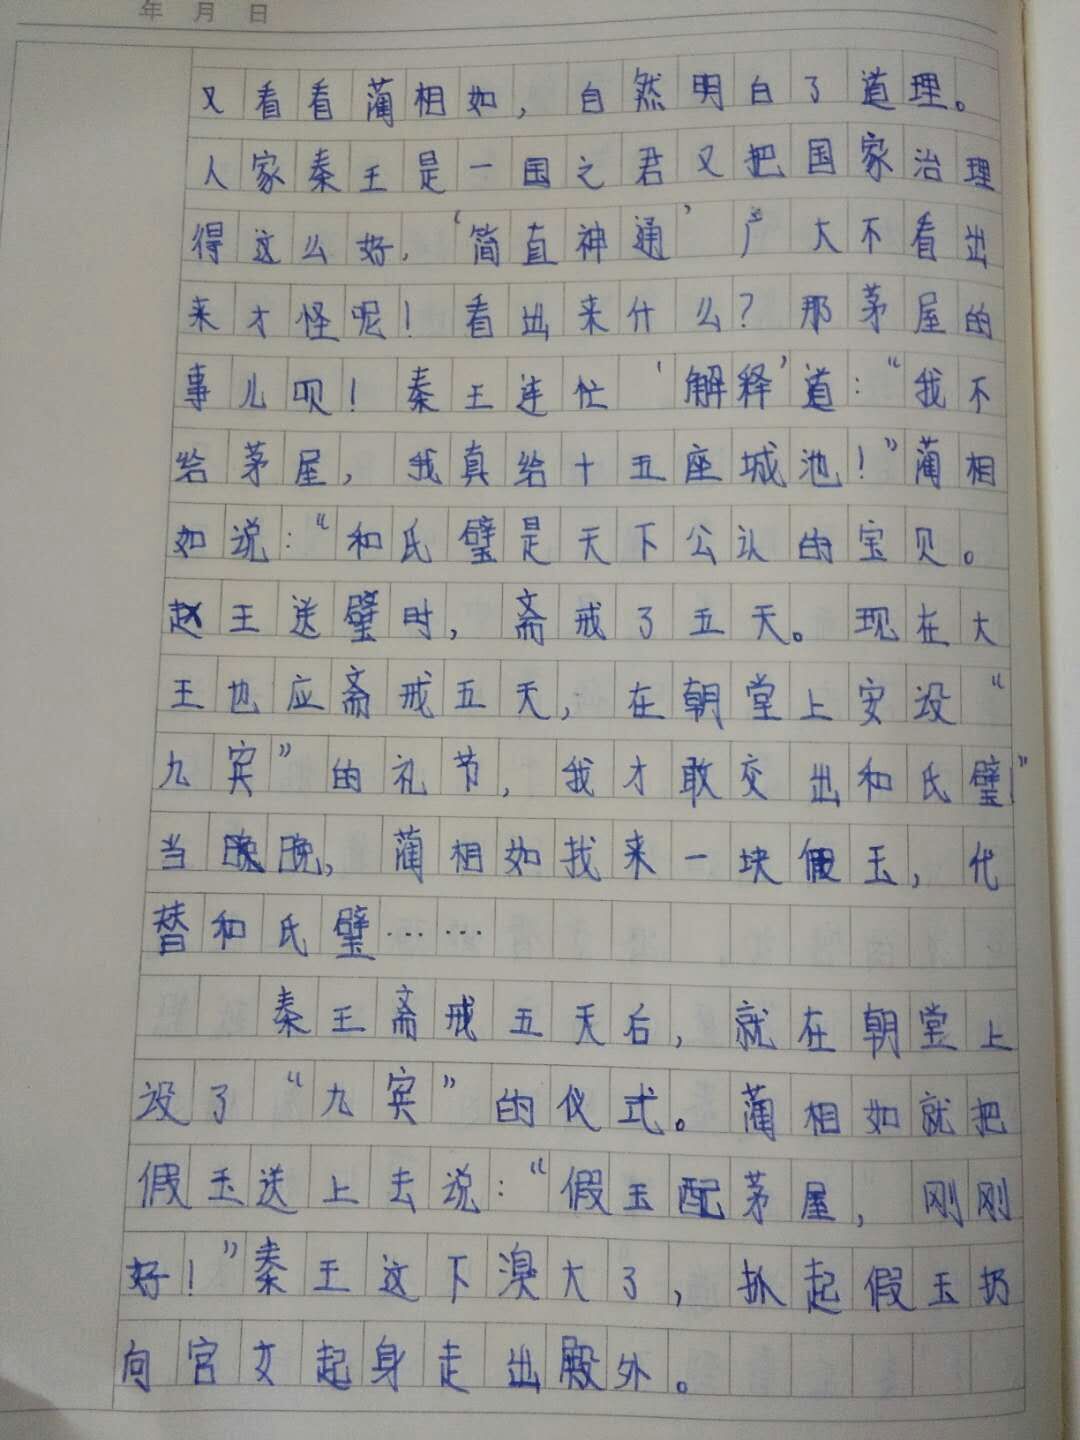 年 月 日
又看看蔺相如，自然明白了道理。
人家秦王是一国之君又把国家治理
得这么好，‘简直神通’广大不看出
来才怪呢！看出来什么？那茅屋的
事儿呗！秦王连忙‘解释’道：“我不
给茅屋，我真给十五座城池！”蔺相
如说：“和氏璧是天下公认的宝贝。
赵王送璧时，斋戒了五天。现在大
王也应斋戒五天，在朝堂上安设“
九宾”的礼节，我才敢交出和氏璧”
当晚，蔺相如找来一块假玉，代
替和氏璧……
秦王斋戒五天后，就在朝堂上
设了“九宾”的仪式。蔺相如就把
假玉送上去说：“假玉配茅屋，刚刚
好！”秦王这下溴大了，抓起假玉扔
向宫女起身走出殿外。